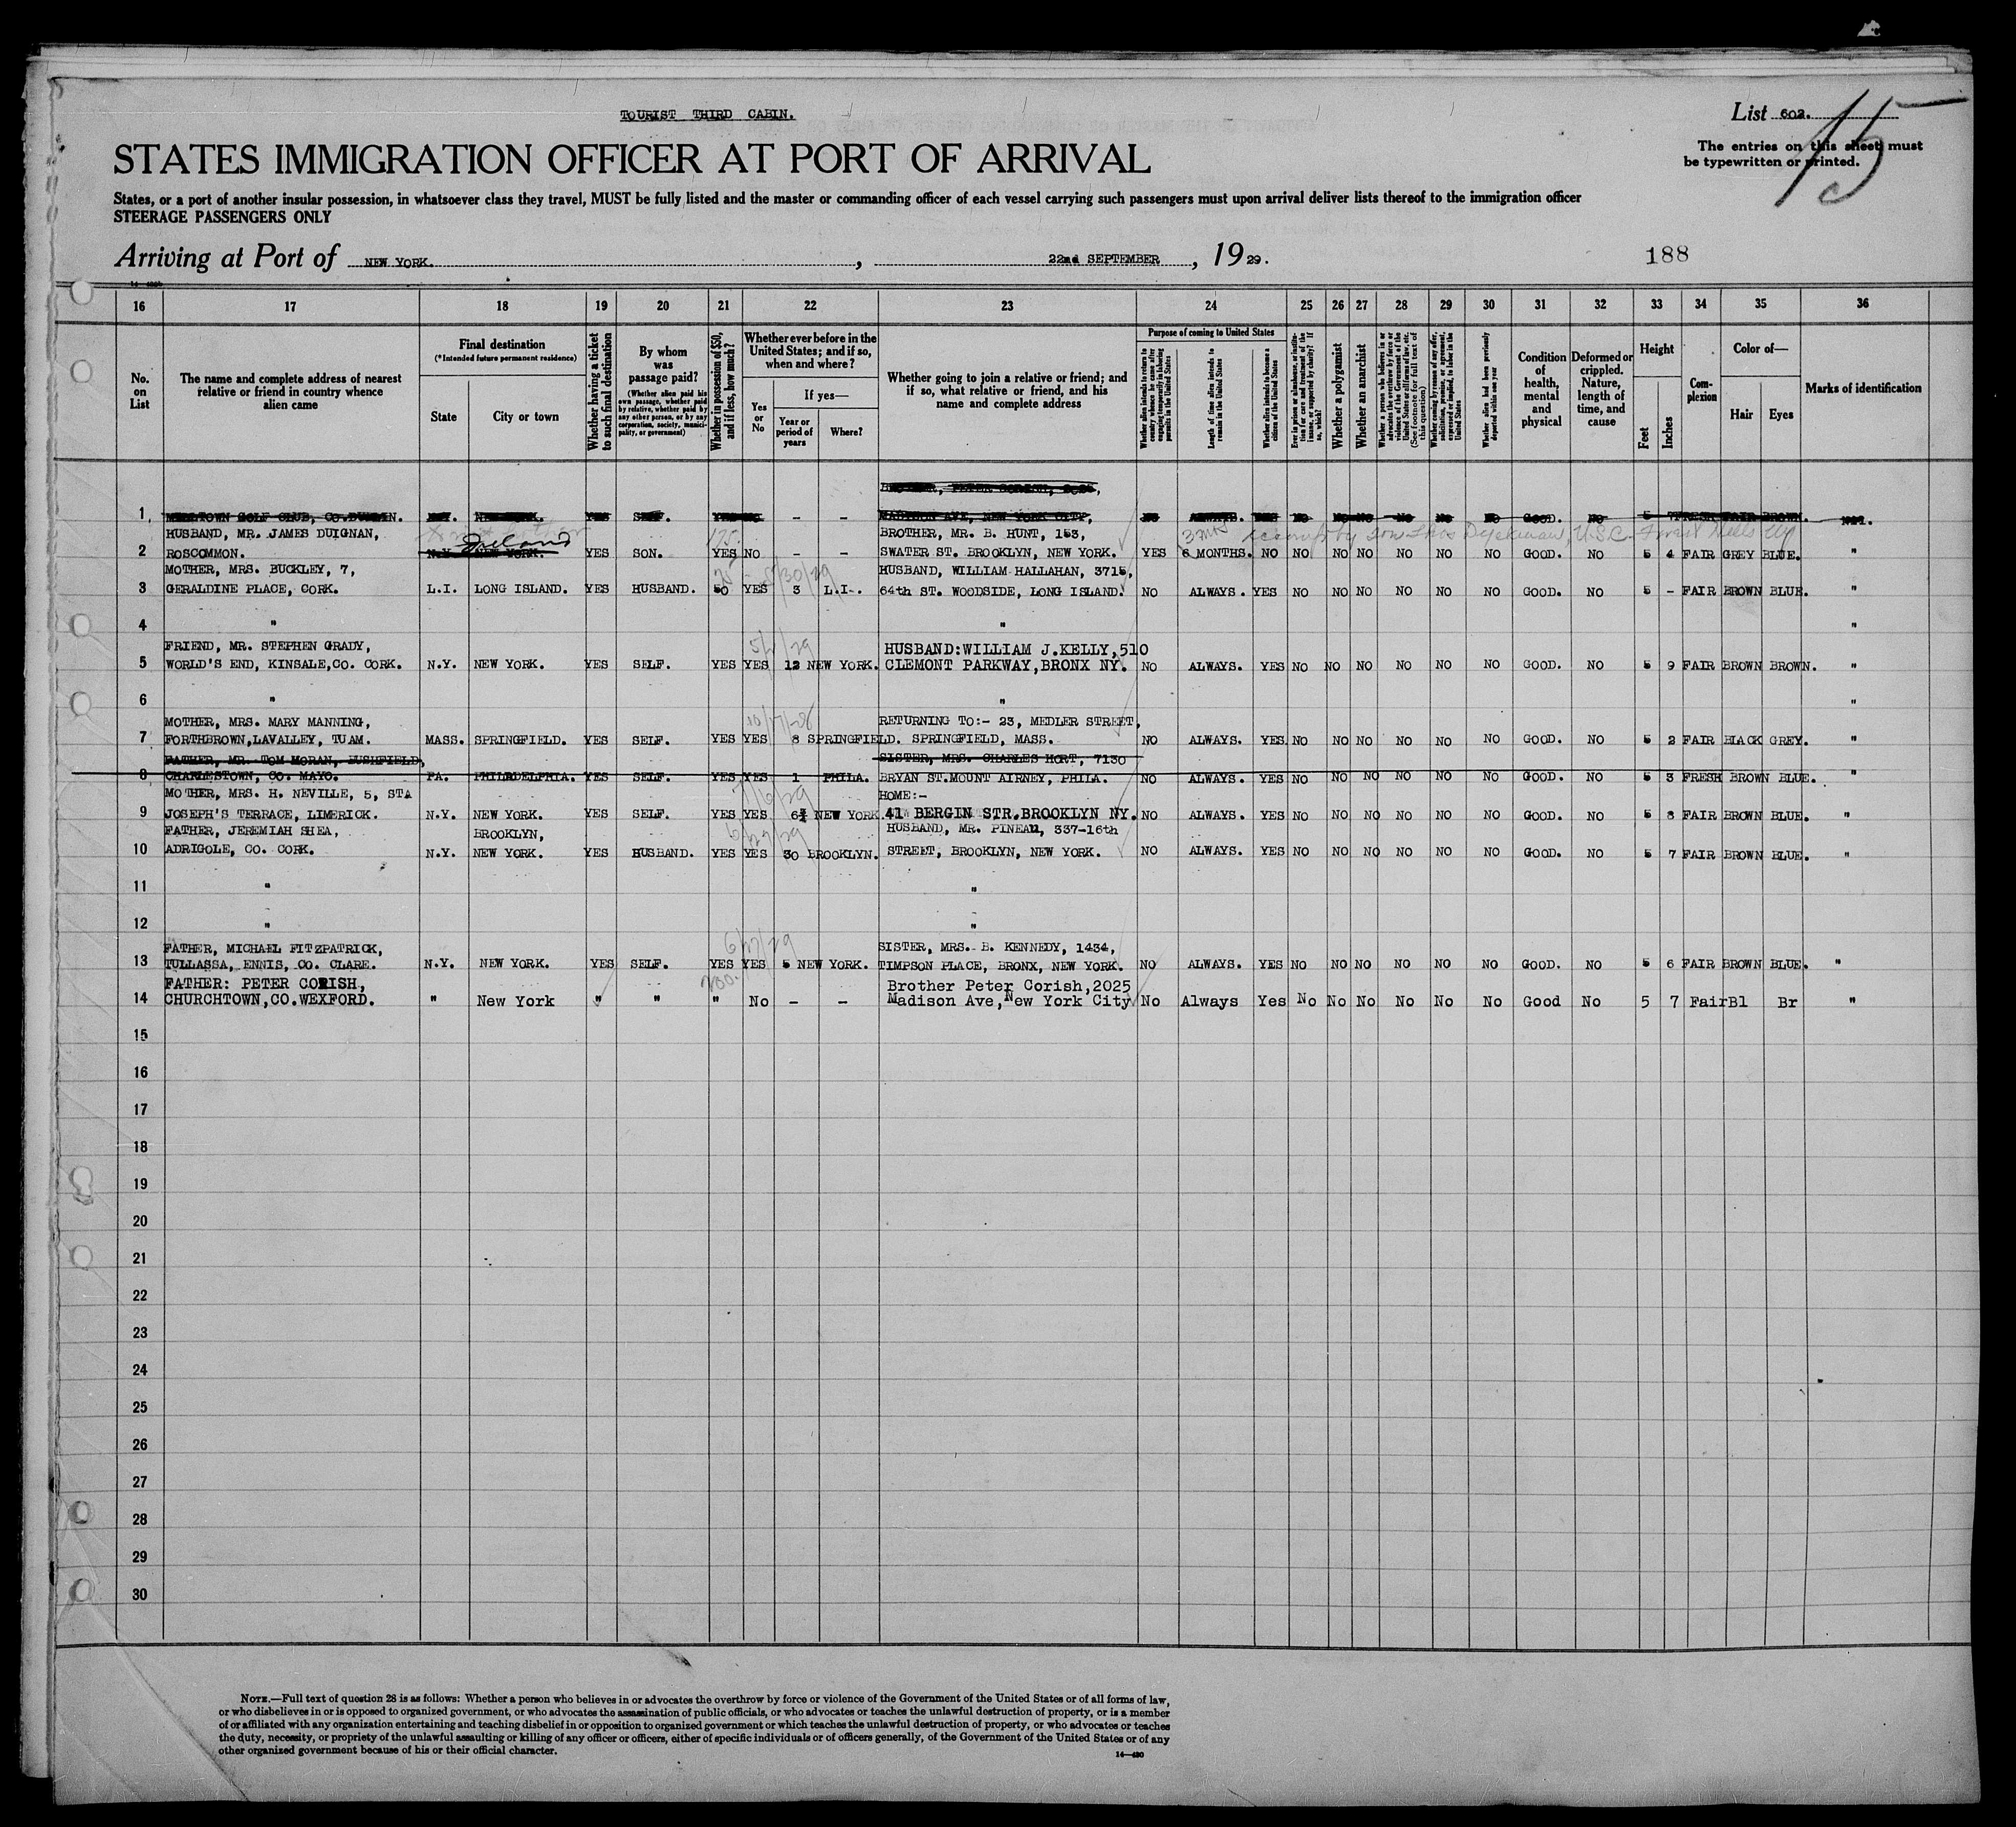 TOURIST THIRD CABIN.
List 602.
15
The entries on this sheet must
be typewritten or printed.
STATES IMMIGRATION OFFICER AT PORT OF ARRIVAL
States, or a port of another insular possession, in whatsoever class they travel, MUST be fully listed and the master or commanding officer of each vessel carrying such passengers must upon arrival deliver lists thereof to the immigration officer
STEERAGE PASSENGERS ONLY
Arriving at Port of NEW YORK. , 22nd SEPTEMBER , 19 29.
188
16 17 18 19 20 21 22 23 24 25 26 27 28 29 30 31 32 33 34 35 36
No. on List
The name and complete address of nearest relative or friend in country whence alien came
Final destination
(*Intended future permanent residence)
State
City or town
Whether having a ticket to such final destination
By whom was passage paid?
(Whether alien paid his own passage, whether paid by relative, whether paid by any other person, or by any corporation, society, municipality, or government)
Whether in possession of $50, and if less, how much?
Whether ever before in the United States; and if so, when and where?
Yes or No
If yes—
Year or period of years
Where?
Whether going to join a relative or friend; and if so, what relative or friend, and his name and complete address
Purpose of coming to United States
Whether alien intends to return to country whence he came after engaging temporarily in laboring pursuits in the United States
Length of time alien intends to remain in the United States
Whether alien intends to become a citizen of the United States
Ever in prison or almshouse, or institution for care and treatment of the insane, or supported by charity? If so, which?
Whether a polygamist
Whether an anarchist
Whether a person who believes in or advocates the overthrow by force or violence of the Government of the United States or all forms of law, etc. (See footnote for full text of this question)
Whether coming by reason of any offer, solicitation, promise, or agreement, expressed or implied, to labor in the United States
Whether alien had been previously deported within one year
Condition of health, mental and physical
Deformed or crippled. Nature, length of time, and cause
Height
Feet
Inches
Complexion
Color of—
Hair
Eyes
Marks of identification
BROTHER, PETER CORISH, 2025,
1 MILLTOWN GOLF CLUB, CO.DUBLIN. N.Y. NEW YORK. YES SELF. – – MADISON AVE, NEW YORK CITY, NO ALWAYS. YES NO NO NO NO NO NO GOOD. NO 5 7 FRESH FAIR BROWN. NIL.
HUSBAND, MR. JAMES DUIGNAN, Ireland 175. BROTHER, MR. B. HUNT, 153, 3 mos
2 ROSCOMMON. N.Y. NEW YORK. YES SON. YES NO – – SWATER ST. BROOKLYN, NEW YORK. YES 6 MONTHS. NO NO NO NO NO NO NO GOOD. NO 5 4 FAIR GREY BLUE. "
MOTHER, MRS. BUCKLEY, 7, 25 8/30/29 HUSBAND, WILLIAM HALLAHAN, 3715,
3 GERALDINE PLACE, CORK. L.I. LONG ISLAND. YES HUSBAND. 50 YES 3 L.I. 64th ST. WOODSIDE, LONG ISLAND. NO ALWAYS. YES NO NO NO NO NO NO GOOD. NO 5 - FAIR BROWN BLUE. "
4 " " "
FRIEND, MR. STEPHEN GRADY, HUSBAND:WILLIAM J.KELLY,510
5 WORLD'S END, KINSALE,CO. CORK. N.Y. NEW YORK. YES SELF. YES YES 12 NEW YORK. CLEMONT PARKWAY,BRONX NY. NO ALWAYS. YES NO NO NO NO NO NO GOOD. NO 5 9 FAIR BROWN BROWN. "
6 " " "
MOTHER, MRS. MARY MANNING, RETURNING TO:- 23, MEDLER STREET,
7 FORTHBROWN,LAVALLEY, TUAM. MASS. SPRINGFIELD. YES SELF. YES YES 8 SPRINGFIELD. SPRINGFIELD, MASS. NO ALWAYS. YES NO NO NO NO NO NO GOOD. NO 5 2 FAIR BLACK GREY. "
FATHER, MR. TOM MORAN, BUSHFIELD, SISTER, MRS. CHARLES HORT, 7130
8 CHARLESTOWN, CO. MAYO. PA. PHILADELPHIA. YES SELF. YES YES 1 PHILA. BRYAN ST.MOUNT AIRNEY, PHILA. NO ALWAYS. YES NO NO NO NO NO NO GOOD. NO 5 3 FRESH BROWN BLUE. "
MOTHER, MRS. H. NEVILLE, 5, STA 7/6/29 HOME:-
9 JOSEPH'S TERRACE, LIMERICK. N.Y. NEW YORK. YES SELF. YES YES 6 NEW YORK. 41 BERGIN STR.BROOKLYN NY. NO ALWAYS. YES NO NO NO NO NO NO GOOD. NO 5 8 FAIR BROWN BLUE. "
FATHER, JEREMIAH SHEA, BROOKLYN, 6/29/29 HUSBAND, MR. PINEAU, 337-16th
10 ADRIGOLE, CO. CORK. N.Y. NEW YORK. YES HUSBAND. YES YES 30 BROOKLYN. STREET, BROOKLYN, NEW YORK. NO ALWAYS. YES NO NO NO NO NO NO GOOD. NO 5 7 FAIR BROWN BLUE. "
11 " "
12 " "
FATHER, MICHAEL FITZPATRICK, SISTER, MRS. B. KENNEDY, 1434,
13 TULLASSA, ENNIS, CO. CLARE. N.Y. NEW YORK. YES SELF. YES YES 5 NEW YORK. TIMPSON PLACE, BRONX, NEW YORK. NO ALWAYS. YES NO NO NO NO NO NO GOOD. NO 5 6 FAIR BROWN BLUE. "
FATHER: PETER CORISH, 200. Brother Peter Corish,2025
14 CHURCHTOWN,CO.WEXFORD. " New York " " " No – – Madison Ave,New York City No Always Yes No No No No No No Good No 5 7 Fair Bl Br "
15
16
17
18
19
20
21
22
23
24
25
26
27
28
29
30
NOTE.—Full text of question 28 is as follows: Whether a person who believes in or advocates the overthrow by force or violence of the Government of the United States or of all forms of law,
or who disbelieves in or is opposed to organized government, or who advocates the assassination of public officials, or who advocates or teaches the unlawful destruction of property, or is a member
of or affiliated with any organization entertaining and teaching disbelief in or opposition to organized government or which teaches the unlawful destruction of property, or who advocates or teaches
the duty, necessity, or propriety of the unlawful assaulting or killing of any officer or officers, either of specific individuals or of officers generally, of the Government of the United States or of any
other organized government because of his or their official character.
14—430